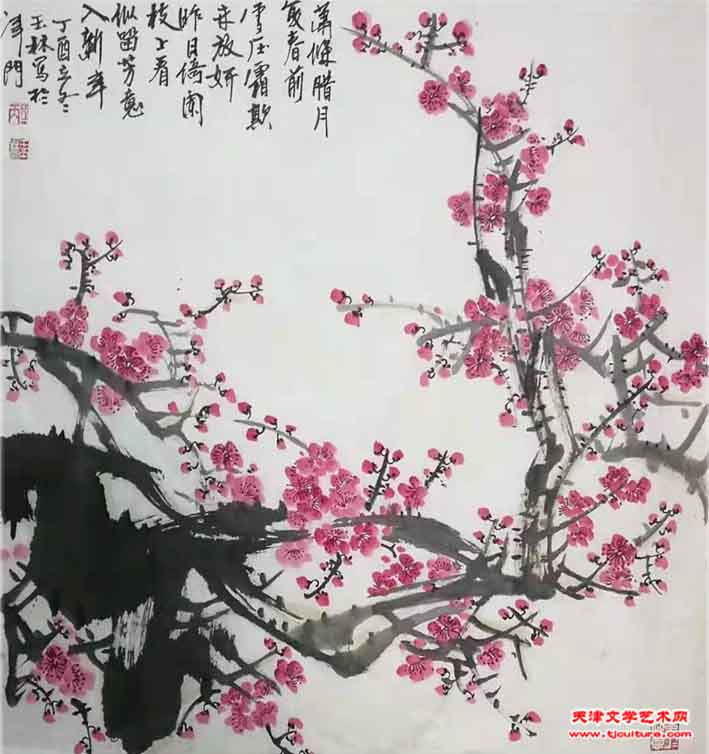 萧條腊月
复春前
雪压霜欺
未放妍
昨日倚阑
枝上看
似留芳意
入新年
丁酉立冬
玉林写於
津門
天津文学艺术网
www.tjculture.com